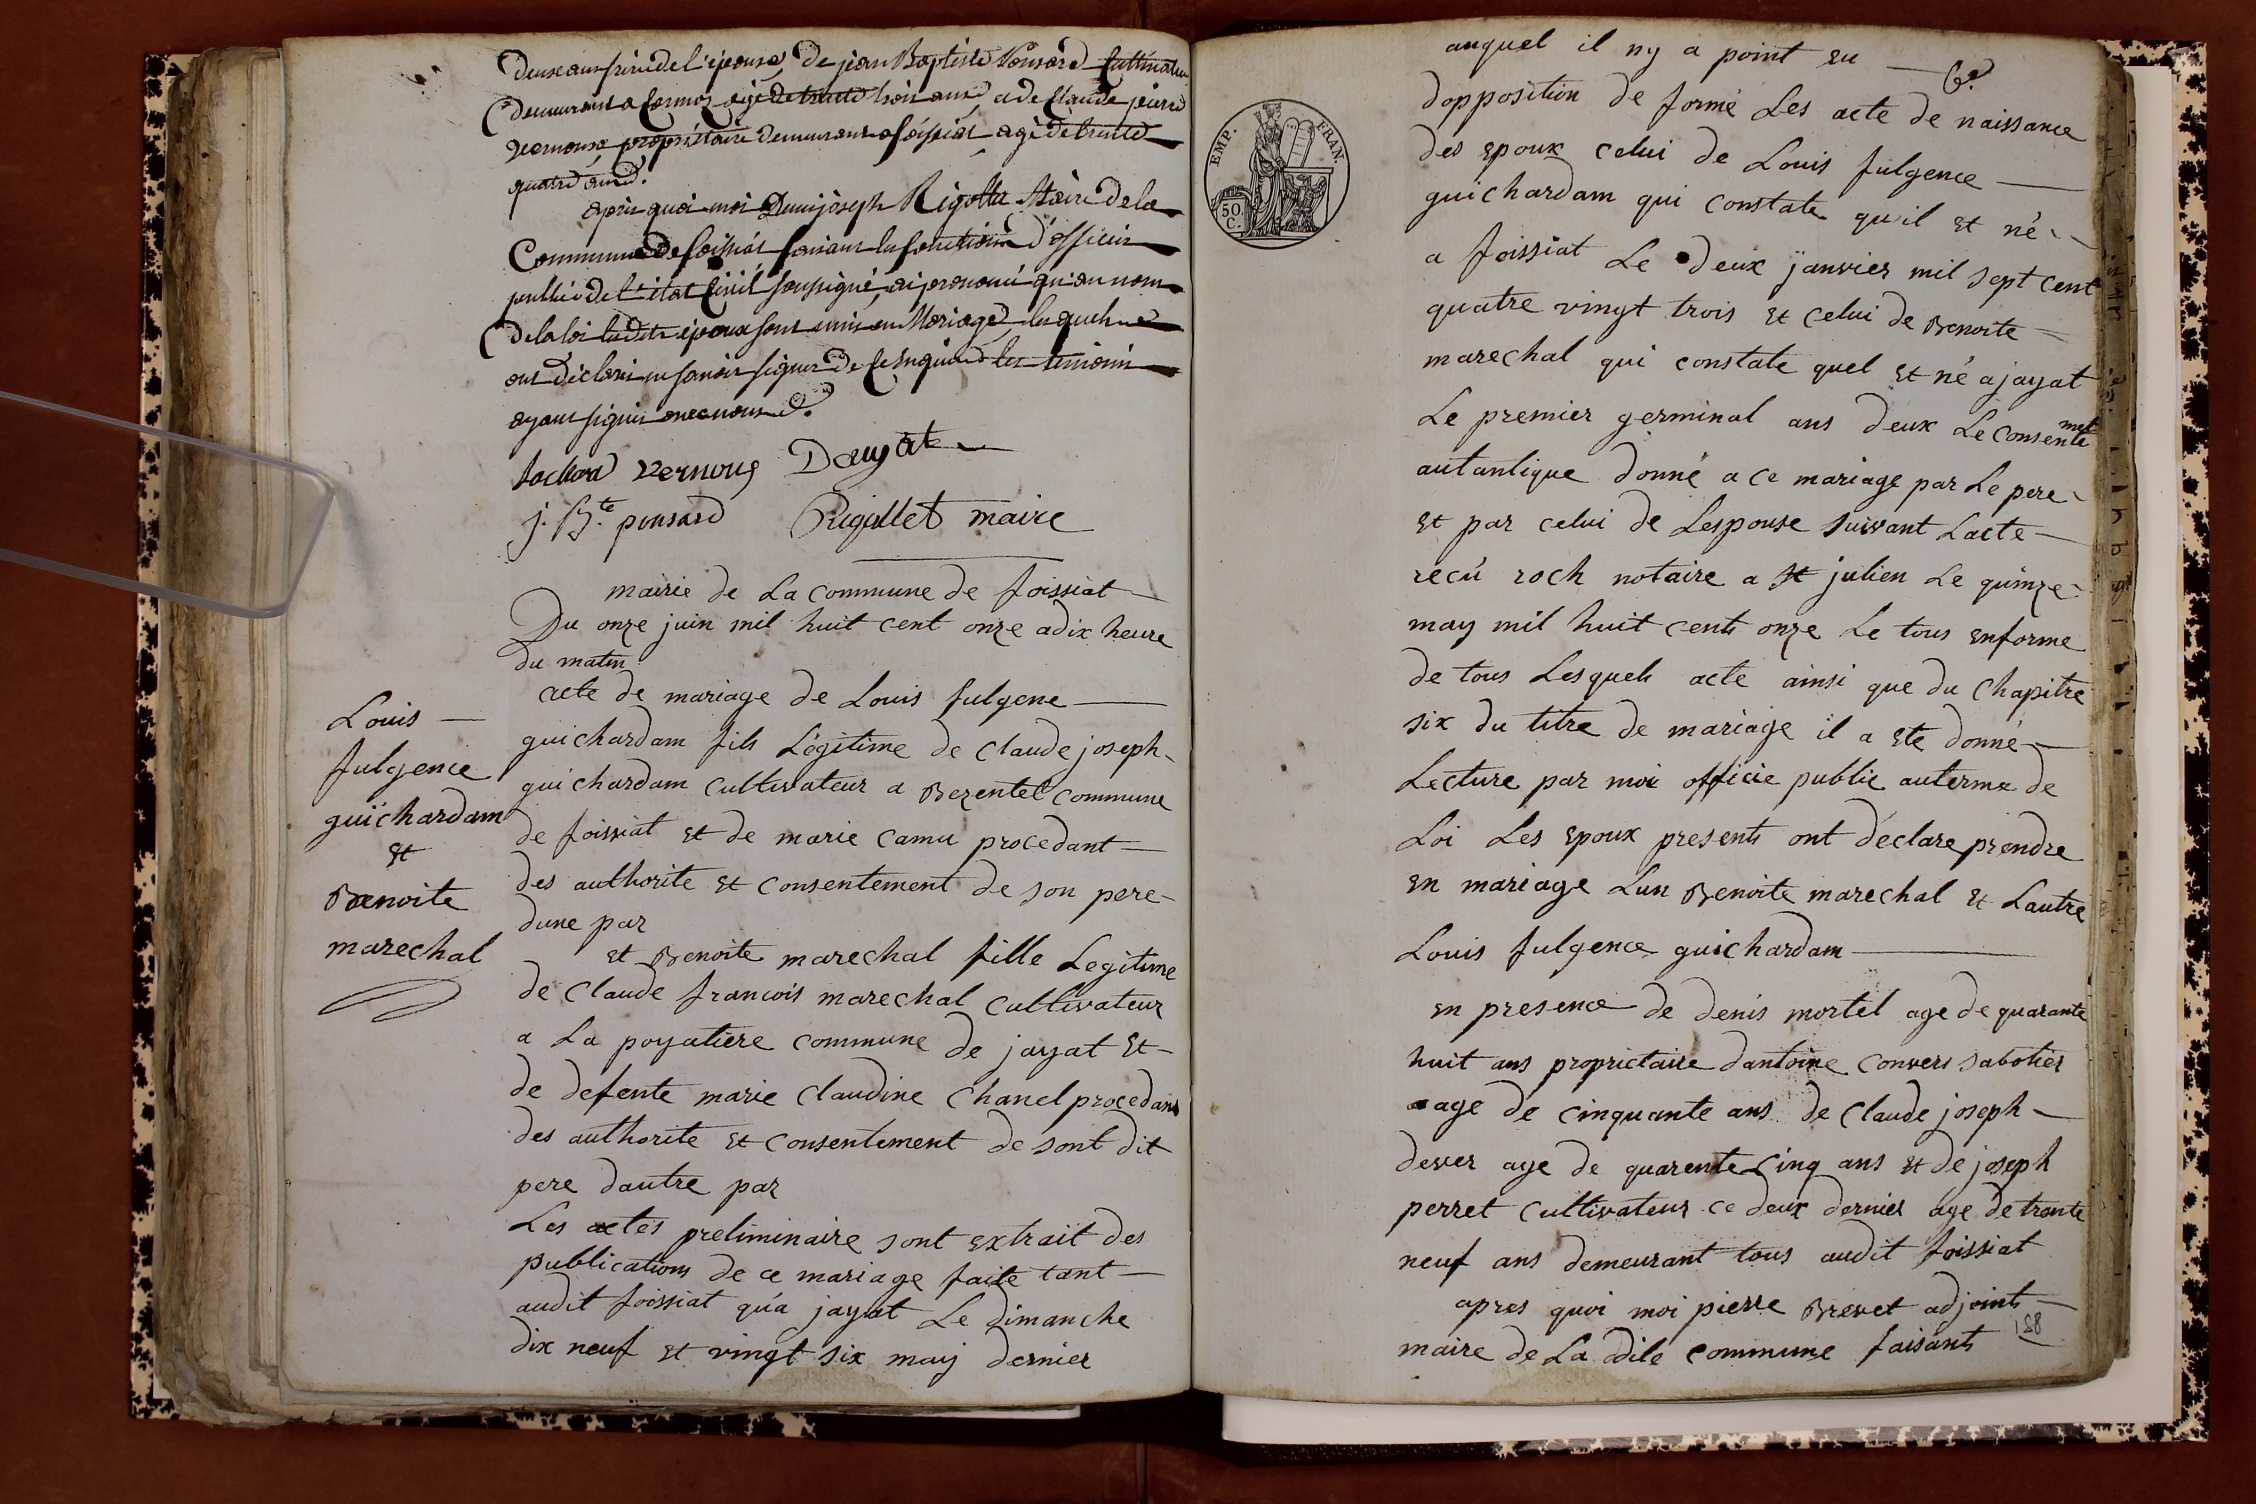 deux ans frere de l'epouse, de jean Baptiste Ponsard Cultivateur
demeurant a Cormoz agé de trente trois ans, et de Claude pierre
vernoux propriétaire demeurant a foissiat agé de trente
quatre ans.
après quoi moi Denis joseph Rigollet Maire de la
Commune de foissiat faisant les fonctions d'officier
public de l'état Civil soussigné, ai prononcé qu'au nom
de la loi lesdits époux sont unis en Mariage, lesquels
ont déclaré ne savoir signer de ce enquis les témoins
ayant signés avec nous.
vernoux Daujat
j. B.te ponsard Rigollet maire
mairie de La commune de foissiat
Du onze juin mil huit cent onze a dix heure
du matin
acte de mariage de Louis fulgene
guichardam fils Légitime de Claude joseph
guichardam cultivateur a Bezentel commune
de foissiat et de marie camu procedant
des authorite et consentement de son pere
dune par
et Benoite marechal fille Legitime
de Claude francois marechal cultivateur
a La poyatiere commune de jayat et
de defente marie Claudine Chanel procedans
des authorite et consentement de sont dit
pere dautre par
Les actes preliminaire sont extrait des
publications de ce mariage faite tant
audit foissiat qu'a jayat Le dimanche
dix neuf et vingt six may dernier
Louis
fulgence
guichardam
et
Benoite
marechal
EMP. FRAN.
50.
C.
auquel il ny a point eu
dopposition de formé Les acte de naissance
des epoux celui de Louis fulgence
guichardam qui constate qu'il et né
a foissiat Le deux janvier mil sept cent
quatre vingt trois et celui de Benoite
marechal qui constate quel et né a jayat
Le premier germinal ans deux Le consente met
autantique donné a ce mariage par Le pere
et par celui de Lespouse suivant Lacte
recû roch notaire a St julien Le quinze
may mil huit cents onze Le tous enforme
de tous Lesquels acte ainsi que du Chapitre
six du titre de mariage il a ete donné
Lecture par moi officie public auterme de
Loi Les epoux presents ont déclare prendre
en mariage Lun Benoite marechal et Lautre
Louis fulgence guichardam
en presence de denis mortel age de quarante
huit ans proprietaire dantoine convers sabotier
age de cinquante ans de Claude joseph
dever age de quarente cinq ans et de joseph
perret cultivateur ce deux dernier age de trente
neuf ans demeurant tous audit foissiat
apres quoi moi pierre Brevet adjoint
maire de La dite commune faisants
158